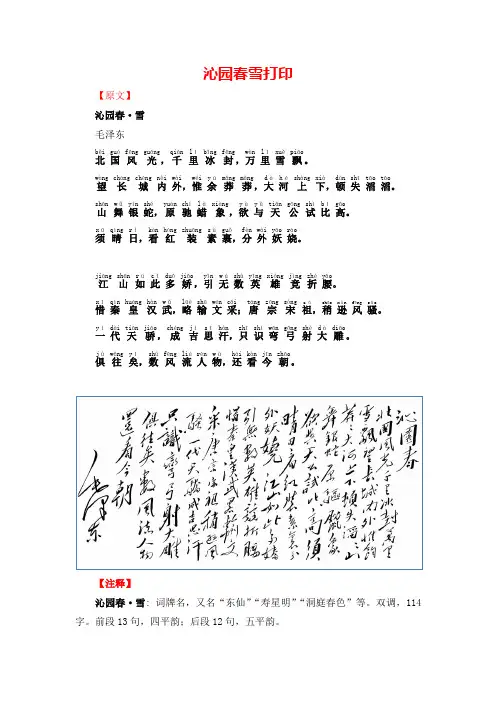 沁园春雪打印
【原文】
沁园春·雪
毛泽东
běi guó fēng guāng qiān lǐ bīng fēng wàn lǐ xuě piāo
北国风光，千里冰封，万里雪飘。
wàng cháng chéng nèi wài wéi yú mǎng mǎng dà hé shàng xià dùn shī tāo tāo
望长城内外，惟余莽莽，大河上下，顿失滔滔。
shān wǔ yín shé yuán chí là xiàng yù yǔ tiān gōng shì bǐ gāo
山舞银蛇，原驰蜡象，欲与天公试比高。
xū qíng rì kàn hóng zhuāng sù guǒ fèn wài yāo ráo
须晴日，看红装素裹，分外妖娆。
jiāng shān rú cǐ duō jiāo yǐn wú shù yīng xióng jìng zhé yāo
江山如此多娇，引无数英雄竞折腰。
xī qín huáng hàn wǔ lüè shū wén cǎi táng zōng sòng zǔ shāo xùn fēng sāo
惜秦皇汉武，略输文采；唐宗宋祖，稍逊风骚。
yí dài tiān jiāo chéng jí sī hán zhǐ shí wān gōng shè dà diāo
一代天骄，成吉思汗，只识弯弓射大雕。
jù wǎng yǐ shǔ fēng liú rén wù hái kàn jīn zhāo
俱往矣，数风流人物，还看今朝。
沁園春
北國風光千里冰封萬里
雪飄望長城內外惟餘
莽莽大河上下頓失滔滔山
舞銀蛇原驅臘象
欲與天公試比高須
晴日看紅裝素裹分
外妖嬈江山如此多嬌
引無數英雄競折腰
惜秦皇漢武略輸文
采唐宗宋祖稍遜風
騷一代天驕成吉思汗
只識彎弓射大雕
俱往矣數風流人物
還看今朝
毛澤東
【注释】
沁园春·雪：词牌名，又名“东仙”“寿星明”“洞庭春色”等。双调，114
字。前段13句，四平韵；后段12句，五平韵。